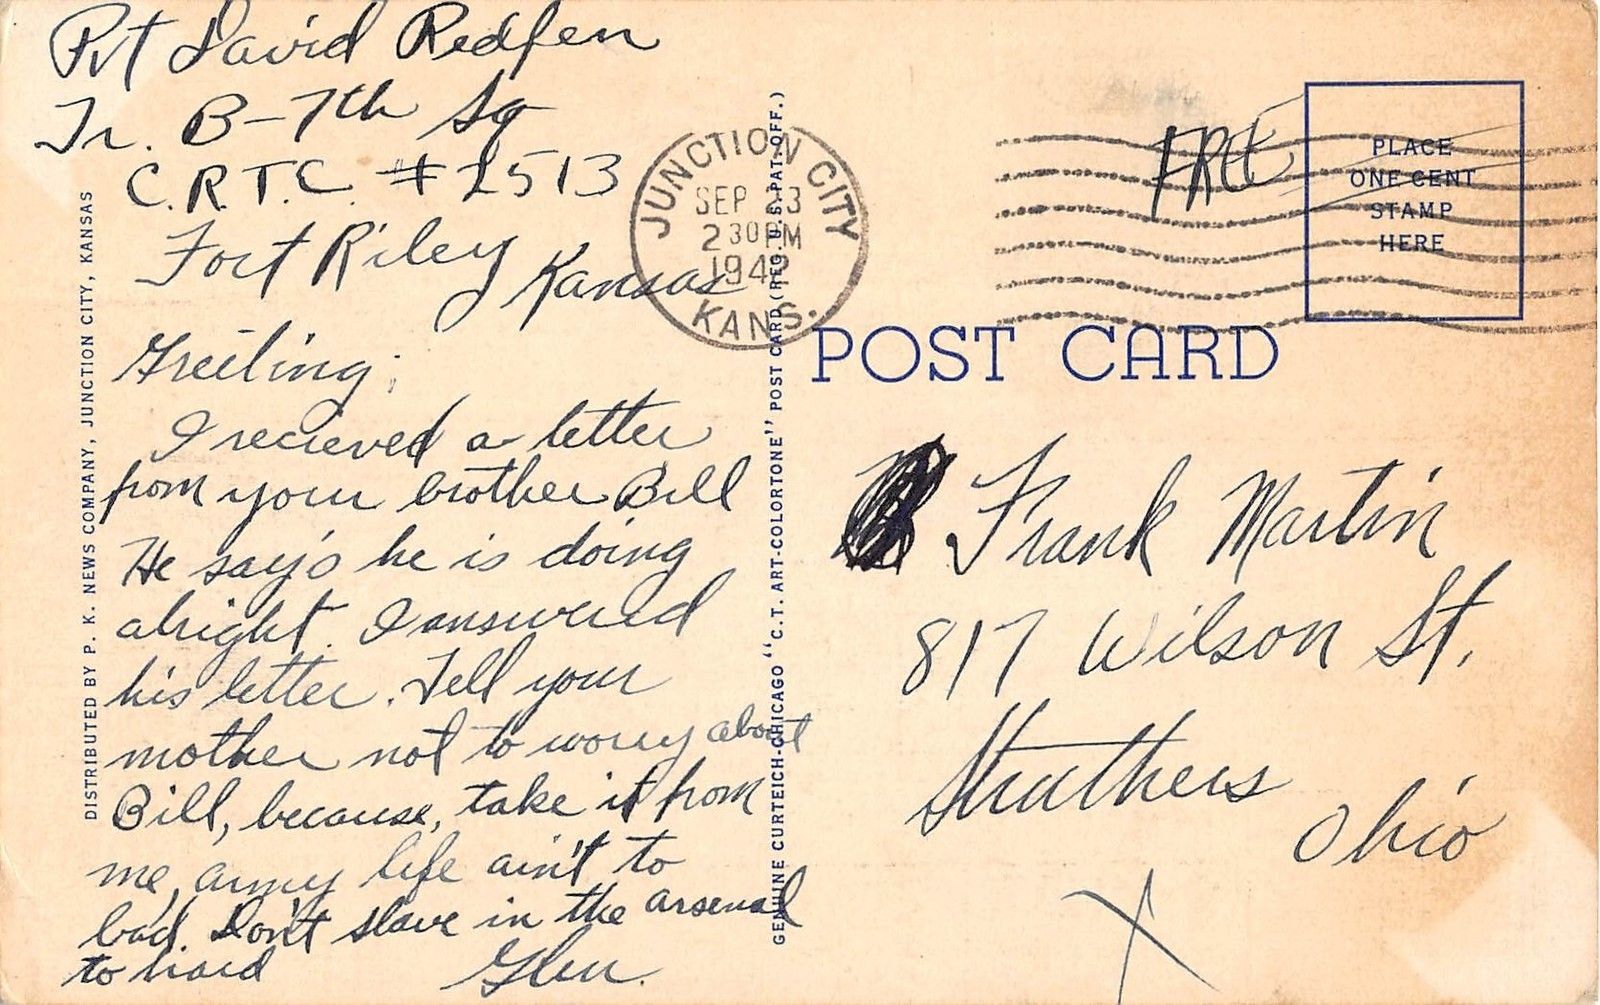 Pvt David Redfern
Tr. B-7th Sq
C.R.T.C. #2513
Fort Riley Kansas
Greeting;
I recieved a letter
from your brother Bill
He say's he is doing
alright. I answered
his letter. Tell your
mother not to worry about
Bill, because, take it from
me, army life ain't to
bad. Don't slave in the arsenal
to hard
Glen.
DISTRIBUTED BY P. K. NEWS COMPANY, JUNCTION CITY, KANSAS
GENUINE CURTEICH-CHICAGO "C.T. ART-COLORTONE" POST CARD (REG. U.S. PAT. OFF.)
JUNCTION CITY
SEP 23
2 30 PM
1942
KANS.
FREE
PLACE
ONE CENT
STAMP
HERE
POST CARD
Frank Martin
817 Wilson St.
Struthers
Ohio
X